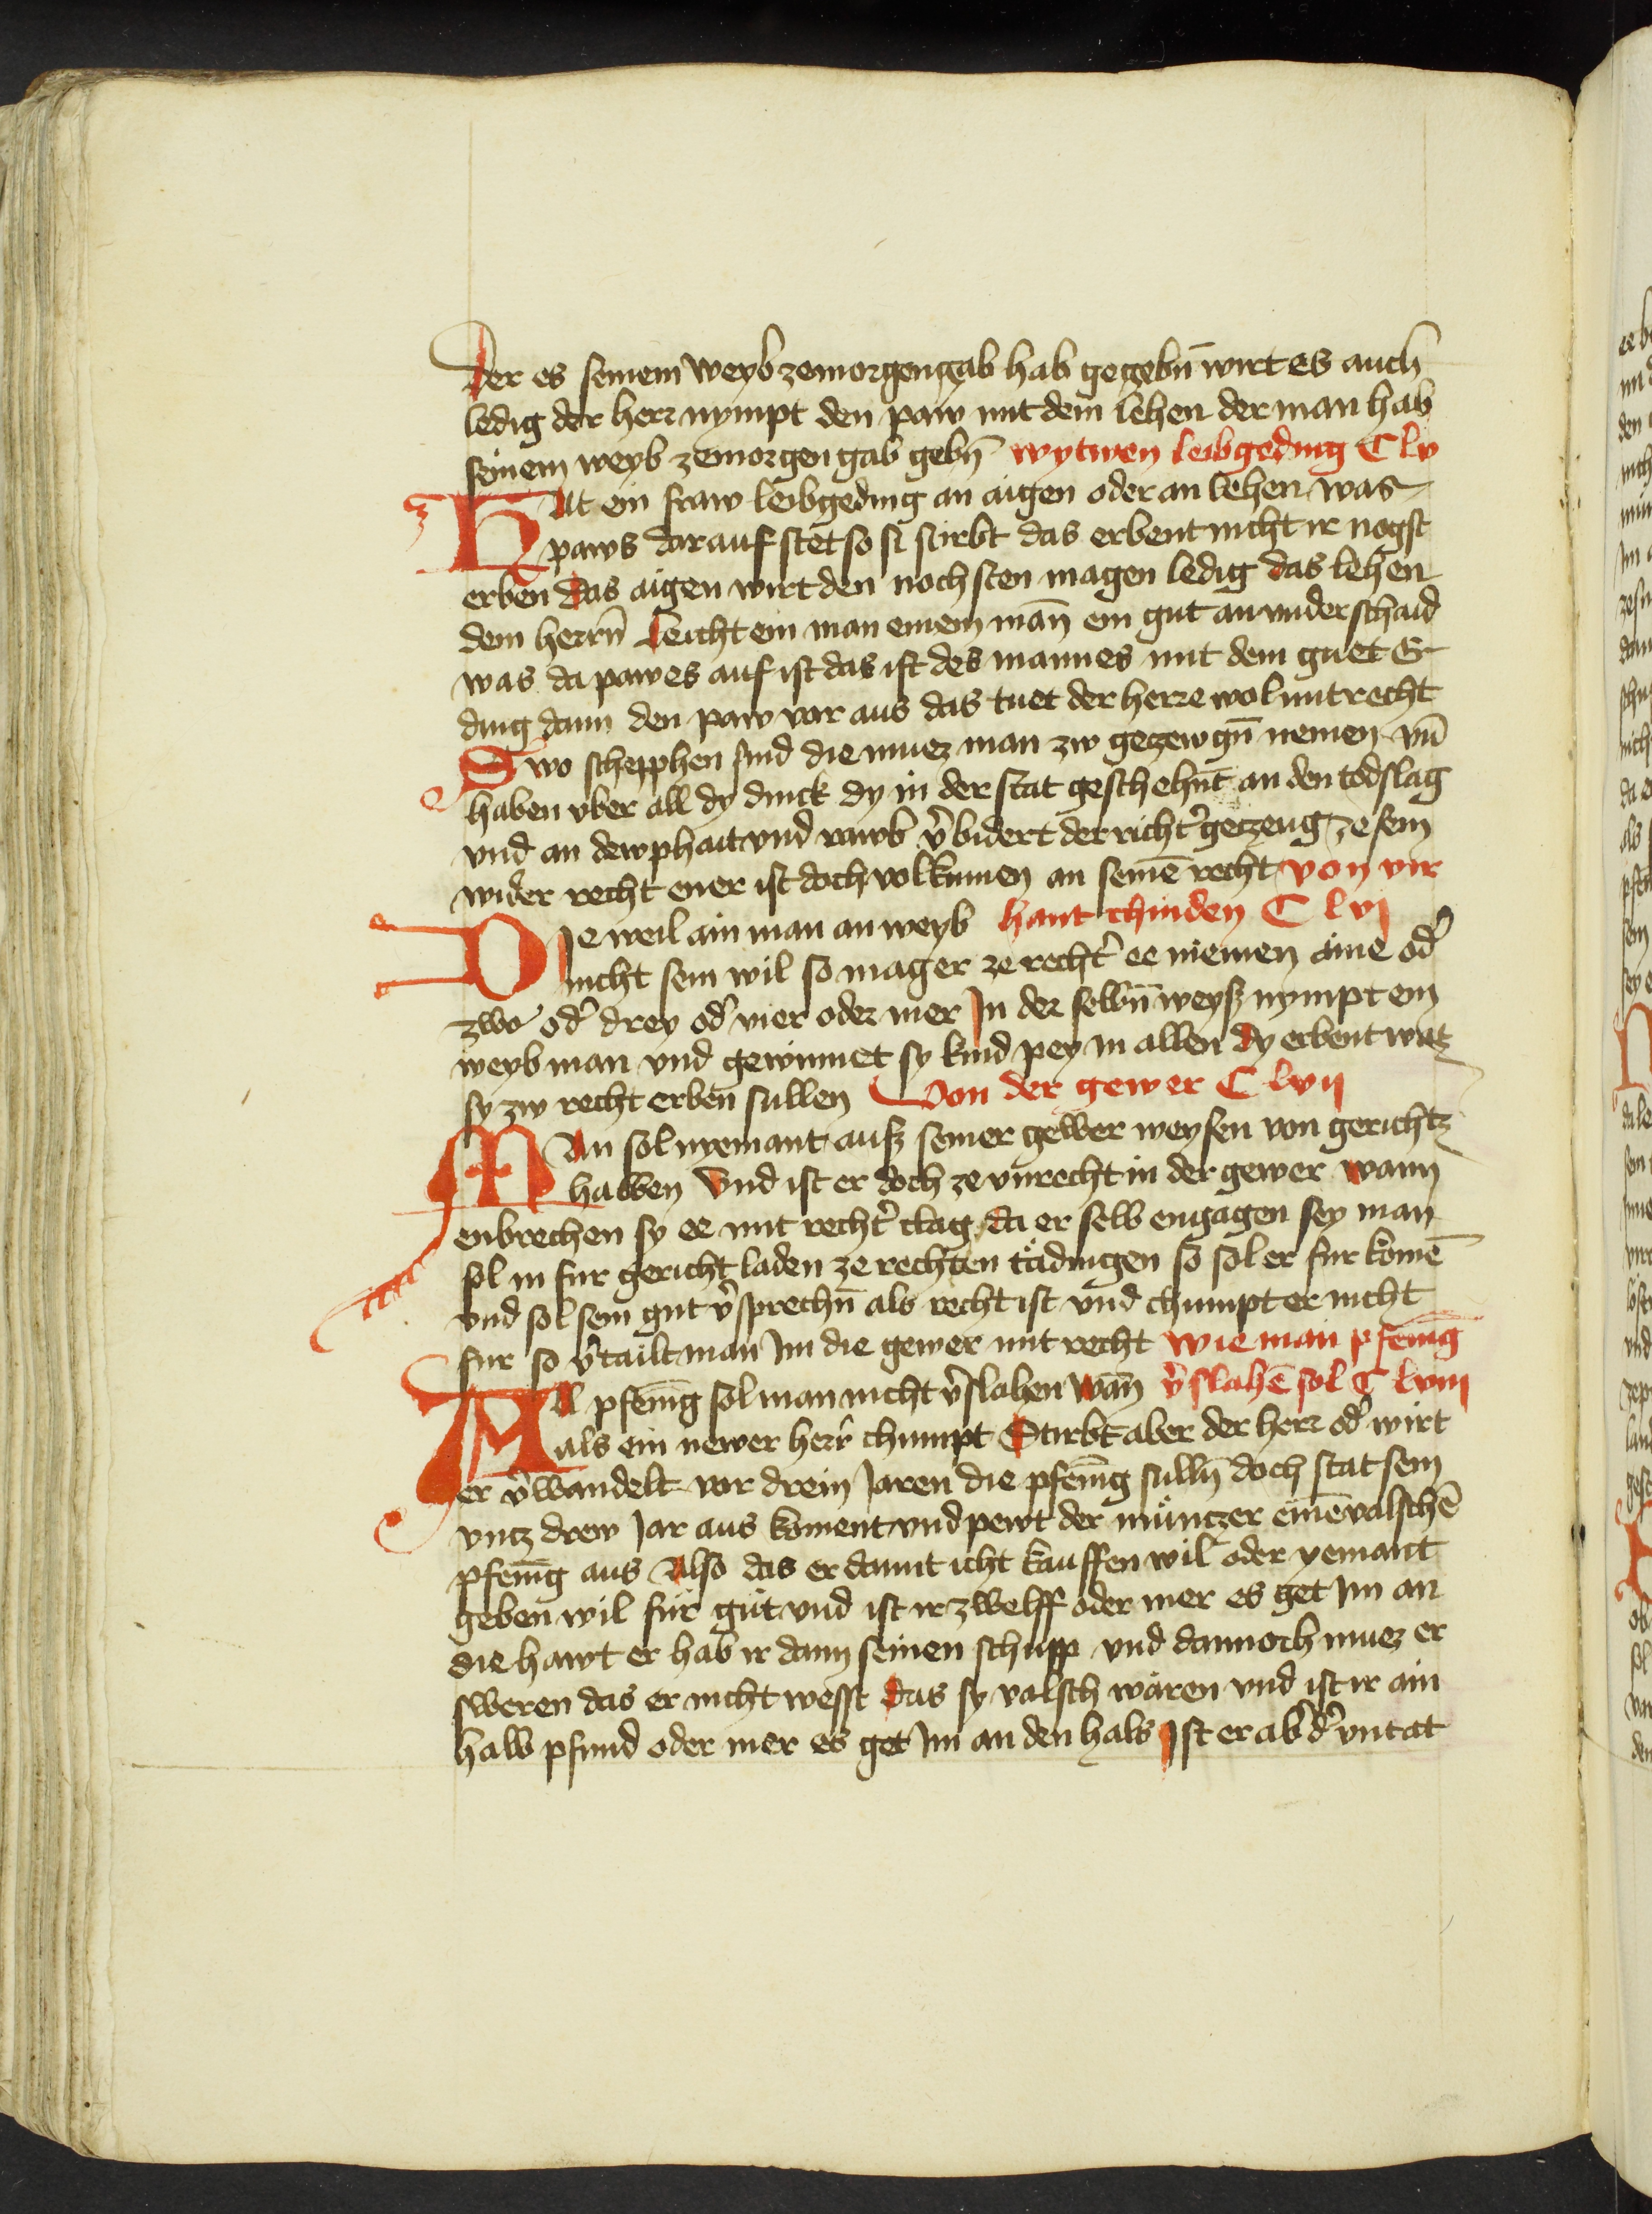 der es seinem weyb zemorgengab hab gegebn̄ wirt es auch
ledig der herr nympt den paw mit dem lehen der man hab
seinem weyb zemorgen gab gebn̄ wytwen leibgeding C lv
Hat ein fraw leibgeding an aigen oder an lehen was
paws darauf stet so si stirbt das erbent nicht ir nagst
erben das aigen wirt den nochsten magen ledig das lehen
dem herrn̄ leicht ein man einem man̄ ein gut an vnderschaid
was da pawes auf ist das ist des mannes mit dem guet Er
ding dann den paw vor aus das tuet der herre wol mit recht
Swo schepphen sind die muez man zw geczewgn̄ nemen vn̄
haben vber all dy dinck dy in der stat geschehnt an den todslag
vnd an dewphait vnd rawb v̾bidert der richt̾ geczeug ze sein
wider recht ener ist doch volkumen an seinē recht von vir
Die weil ain man an weyb hant chinden C lvj
nicht sein wil so mag er ze recht̾ ee niemen aine od̾
zwo od̾ drey od̾ vier oder mer Jn der selbn̄ weyß nympt ein
weyb man vnd gewinnet sy kind pey in allen dy erbent waz
sy zw recht erben sullen Von der gewer C lvij
Man sol nyemant auß seiner gewer weysen von gerichtz
halben Vnd ist er doch ze vnrecht in der gewer wann
enbrechen sy ee mit recht̾ clag da er selb engagen sey man
sol in fur gericht laden ze rechten tädingen so sol er fur komē
vnd sol sein gut v̾sprechn̄ als recht ist vnd chumpt er nicht
fur so v̾tailt man Im die gewer mit recht wie man pfenīg
All pfenīg sol man nicht v̾slahen wan̄ v̾slahē sol C lviij
als ein newer herr chumpt Stirbt aber der herr od̾ wirt
er v̾wandelt vor drein Jaren die pfenīg sulln̄ doch stat sein
vncz drew Jar aus koment vnd pewt der müntzer einē valschē
pfenīg aus Also das er damit icht kauffen wil oder yemant
geben wil für güt vnd ist ir zwelff oder mer es get Im an
die hawt er hab ir dann seinen schupp vnd dannoch muez er
sweren das er nicht wesst das sy valsch wären vnd ist ir ain
halb pfund oder mer es get Im an den hals Ist er ab̾ d̾ vntat